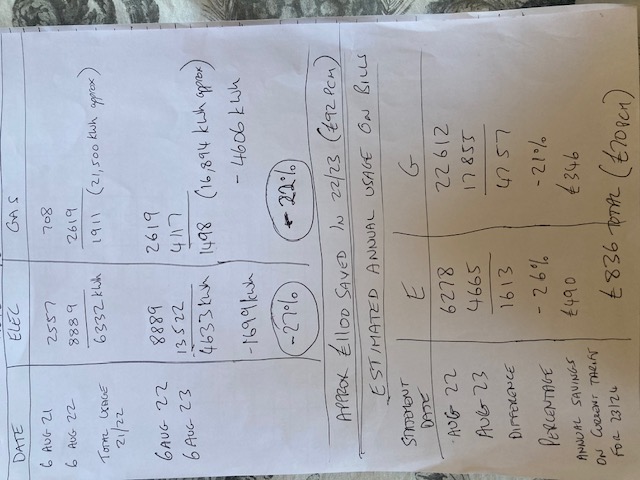 DATE ELEC GAS
6 AUG 21 2557 708
6 AUG 22 8889 2619
TOTAL USAGE 21/22 6332 kWh 1911 (21,500 kWh approx)
6 AUG 22 8889 2619
6 AUG 23 13522 4117
4633 kWh 1498 (16,894 kWh approx)
-1699 kWh - 4606 kWh
-27% - 22%
APPROX £1100 SAVED IN 22/23 (£92 PCM)
ESTIMATED ANNUAL USAGE ON BILLS
STATEMENT DATE E G
AUG 22 6278 22612
AUG 23 4665 17855
DIFFERENCE 1613 4757
PERCENTAGE - 26% - 21%
ANNUAL SAVINGS £490 £346
ON CURRENT TARIFF
FOR 23/24 £836 TOTAL (£70 PCM)